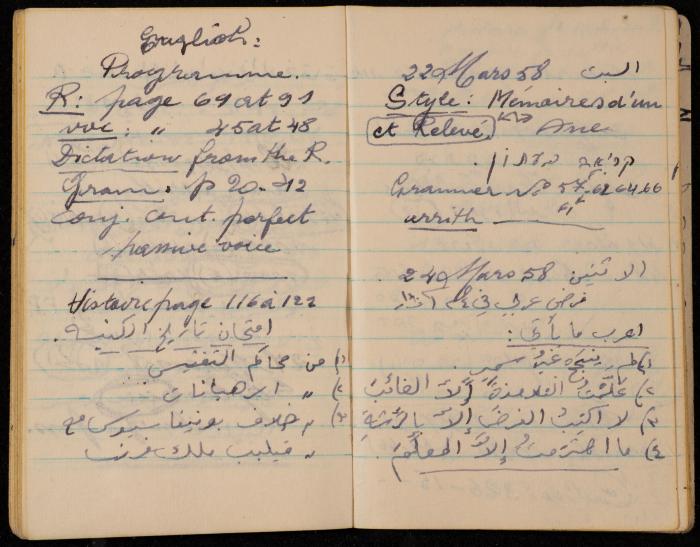 English:
Programme.
R: page 69 at 91
voc: " 45 at 48
Dictation from the R.
Gram. p 20-212
conj. cont. perfect
passive voice
Histoire page 116 à 122
امتحان تاريخ الكنيسة.
١) من محاكم التفتيش
٢) " الرهبانات
٣) " خلاف بونيفاسيوس مع
" فيليب ملك فرنسا
22 Mars 58 السبت
Style: Mémoires d'un
et Relevé. Ane
קריאה
Grammer No 57. 62 64.66
61
arrith
24 Mars 58 الاثنين
فرض عربي في
اعرب ما يأتي:
١) لم ينجح غير سمير
٢) علّمتُ التلامذة إلّا الغائب
٣) لا اكتب الفرض إلّا بالريشةِ
٤) ما احترمتُ إلّا المعلّمَ